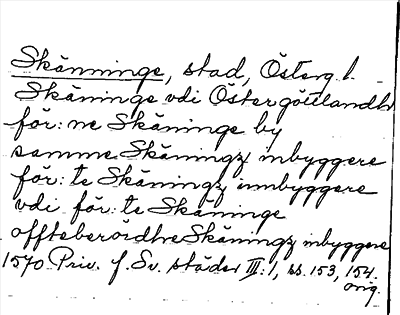 Skänninge, stad, Österg l.
Skäninge vdi Östergöttlandh
för:ne Skäninge by
samme Skäningz inbyggere
för:te Skäningz innbyggere
vdi för:te Skäninge
offteberördhe Skäningz inbyggere
1570 Priv. f. Sv. städer III:1, ss. 153, 154.
orig.